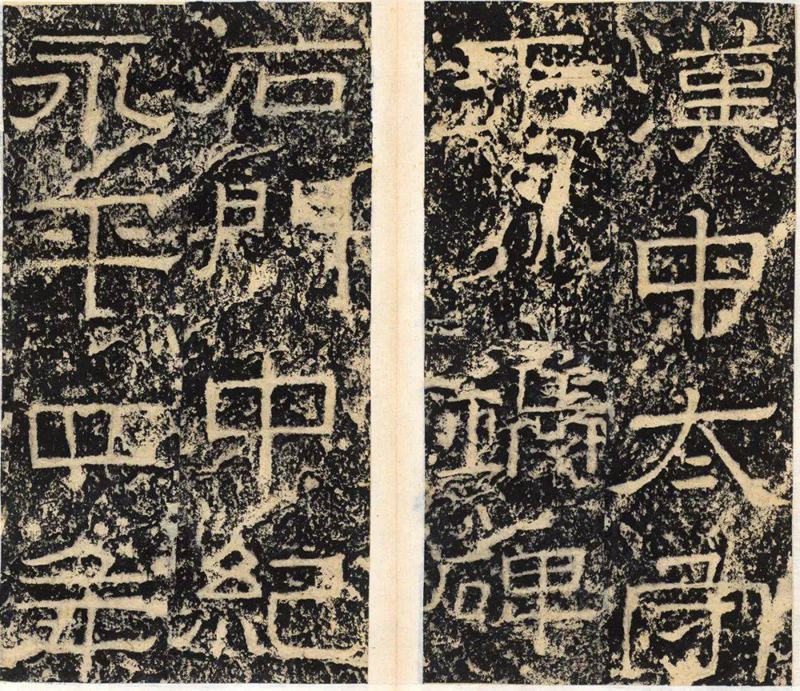 漢中太守
碑
石門中紀
永平四年